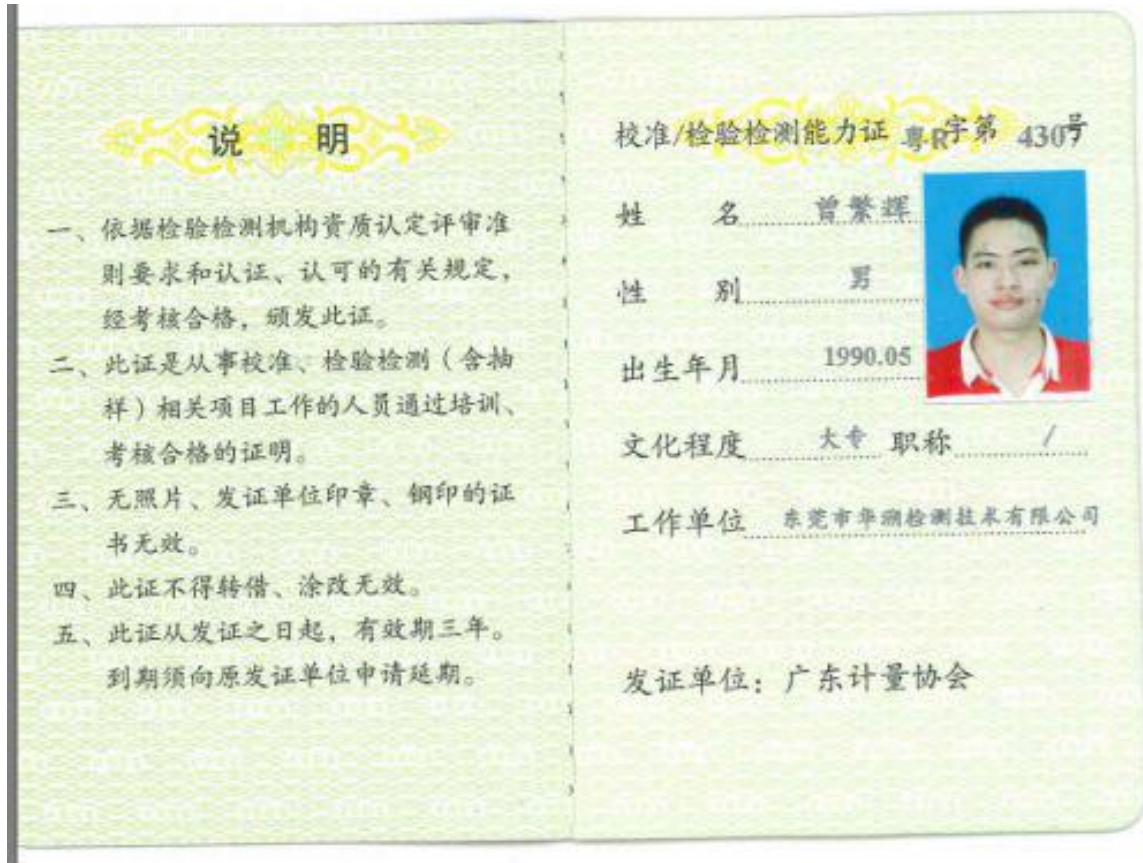 说 明
一、依据检验检测机构资质认定评审准
则要求和认证、认可的有关规定，
经考核合格，颁发此证。
二、此证是从事校准、检验检测（含抽
样）相关项目工作的人员通过培训、
考核合格的证明。
三、无照片、发证单位印章、钢印的证
书无效。
四、此证不得转借、涂改无效。
五、此证从发证之日起，有效期三年。
到期须向原发证单位申请延期。
校准/检验检测能力证 粤R字第 4307号
姓 名 曾繁辉
性 别 男
出生年月 1990.05
文化程度 大专 职称 /
工作单位 东莞市华溯检测技术有限公司
发证单位：广东计量协会